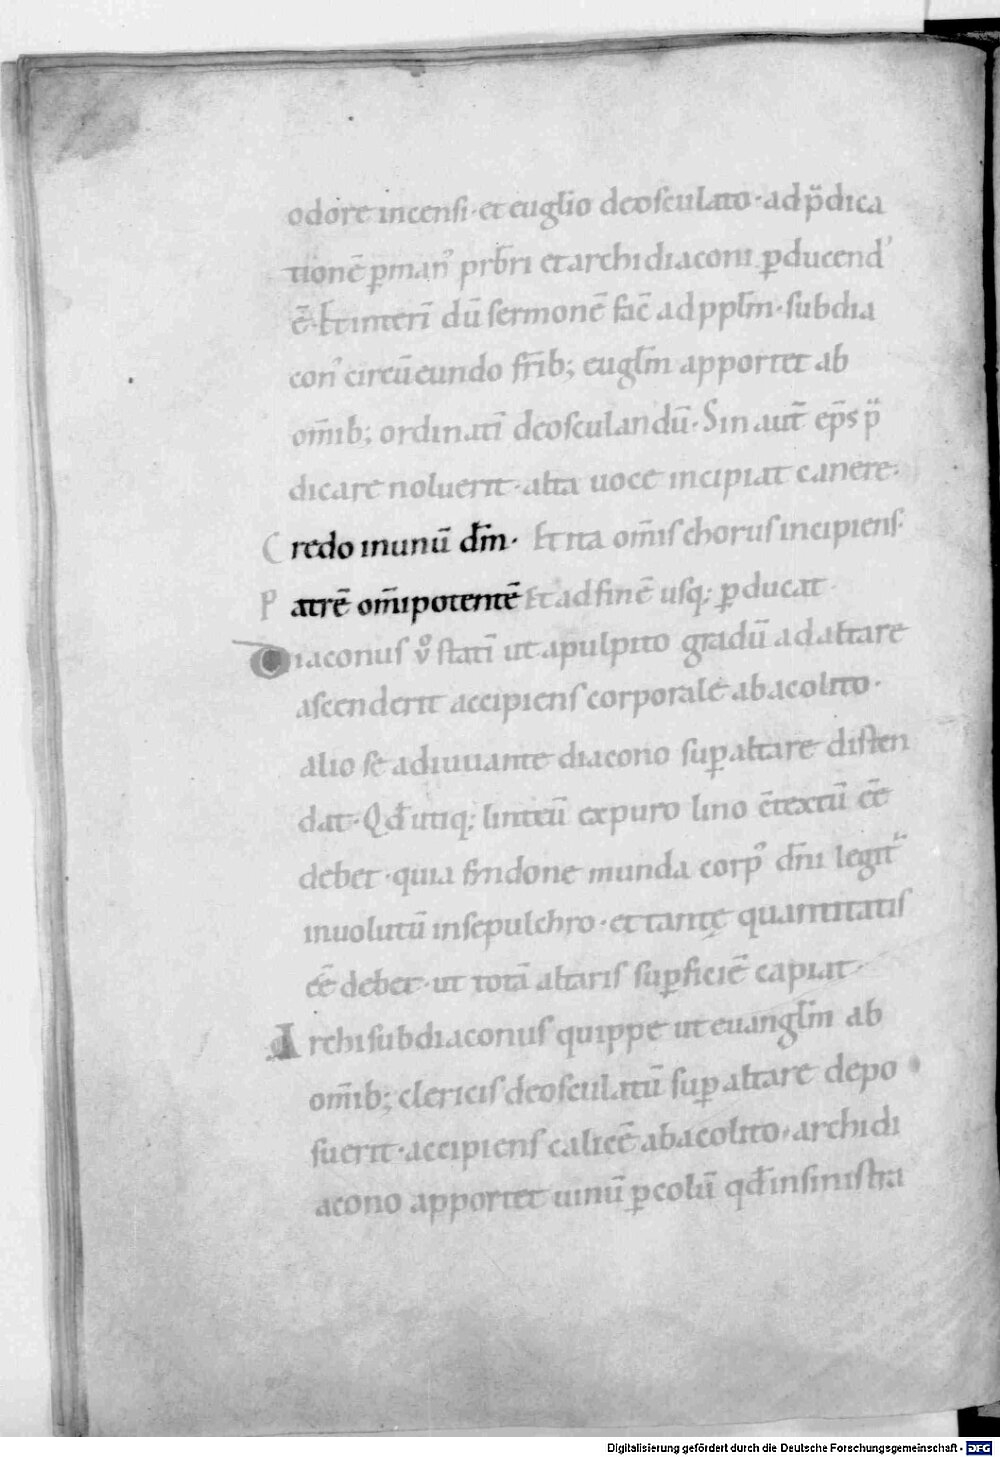 odore incensi· et euglio deosculato· ad p̈dica
tionē ꝑ man᾽ prb̄ri et archidiaconi ꝑducend᾽
ē· Et interī dū sermonē fac̄ ad pplm̄· subdia
con᾽ circūeundo fr̄ib; euglm̄ apportet ab
om̄ib; ordinatī deosculandū· Sin aut̄ ep̄s p̈
dicare noluerit· alta uoce incipiat canere·
Credo in unū dm̄· Et ita om̄is chorus incipiens·
Patrē om̄ipotentē Et ad finē usq; ꝑducat·
Diaconus v̊ statī ut a pulpito gradū ad altare
ascenderit accipiens corporale ab acolito·
alio se adiuuante diacono suꝑ altare disten
dat· Qđ utiq; linteū ex puro lino ētextū ēē
debet· quia sindone munda corp᾽ dn̄i legit̄
inuolutū in sepulchro· et tantę quantitatis
ēē debet· ut totā altaris suꝑficiē capiat·
Archisubdiaconus quippe ut euanglm̄ ab
om̄ib; clericis deosculatū suꝑ altare depo
suerit· accipiens calicē ab acolito· archidi
acono apportet uinū ꝑ colū qđ in sinistra
Digitalisierung gefördert durch die Deutsche Forschungsgemeinschaft - DFG